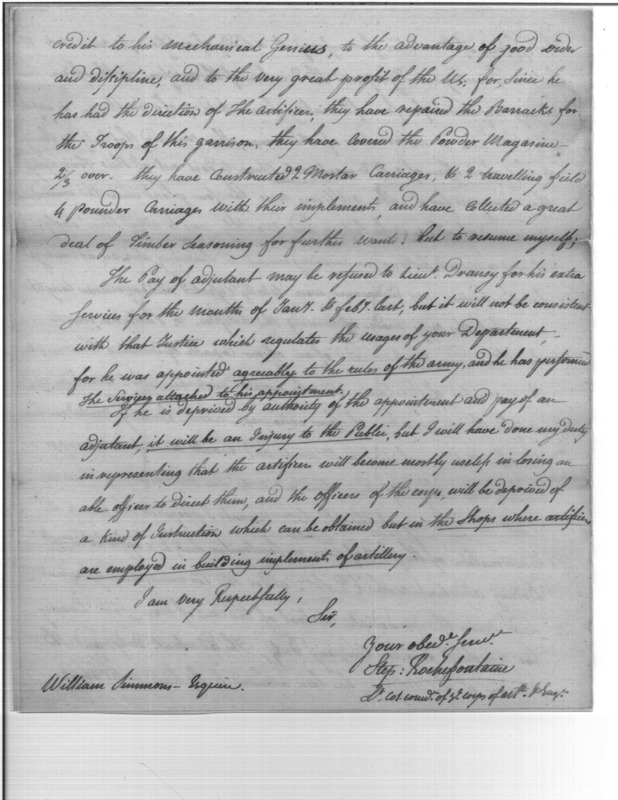 credit to his mechanical Genius, to the advantage of good order
and discipline, and to the very great profit of the US, for, Since he
has had the direction of The artificer, they have repaired the Barracks for
the Troops of this garrison, they have Covered the Powder Magazine
2/3 over. they have Constructed 2 Mortar Carriages, & 2 travelling field
4 pounder Carriages with their implements, and have Collected a great
deal of Timber Seasoning for further wants. but to resume myself;
The Pay of adjutant may be refused to Lieut. Dransy for his extra
Services for the months of Jany. & feby. last, but it will not be consistent
with that Justice which regulates the usages of your Department,
for he was appointed agreably to the rules of the army, and he has performed
the Services attached to his appointment.
If he is deprived by authority of the appointment and pay of an
adjutant, it will be an Injury to the Public, but I will have done my duty
in representing that the artificers will become mostly useless in losing an
able officer to direct them, and the officers of the corps, will be deprived of
a Kind of Instruction which can be obtained but in the Shops where artificers
are employed in building implements of artillery.
I am very Respectfully,
Sir,
your obedt. Servt
Step: Rochefontaine
William Simmons - Esquire.
Lt Col comdt. of ye. corps of arty. & Engrs.